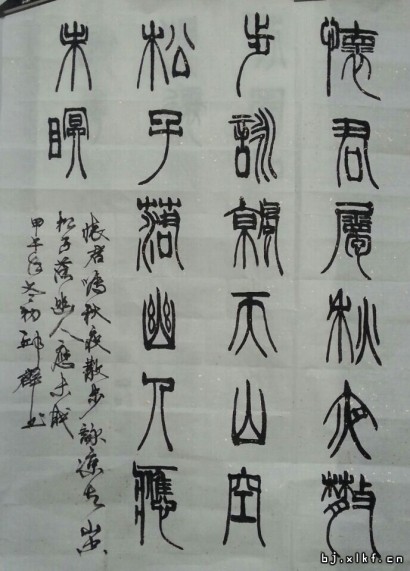 懷君屬秋夜散
步詠涼天山空
松子落幽人應
未瞑
懷君屬秋夜散步詠涼天山空
松子落幽人應未眠
甲午年冬初書
bj.xlkf.cn